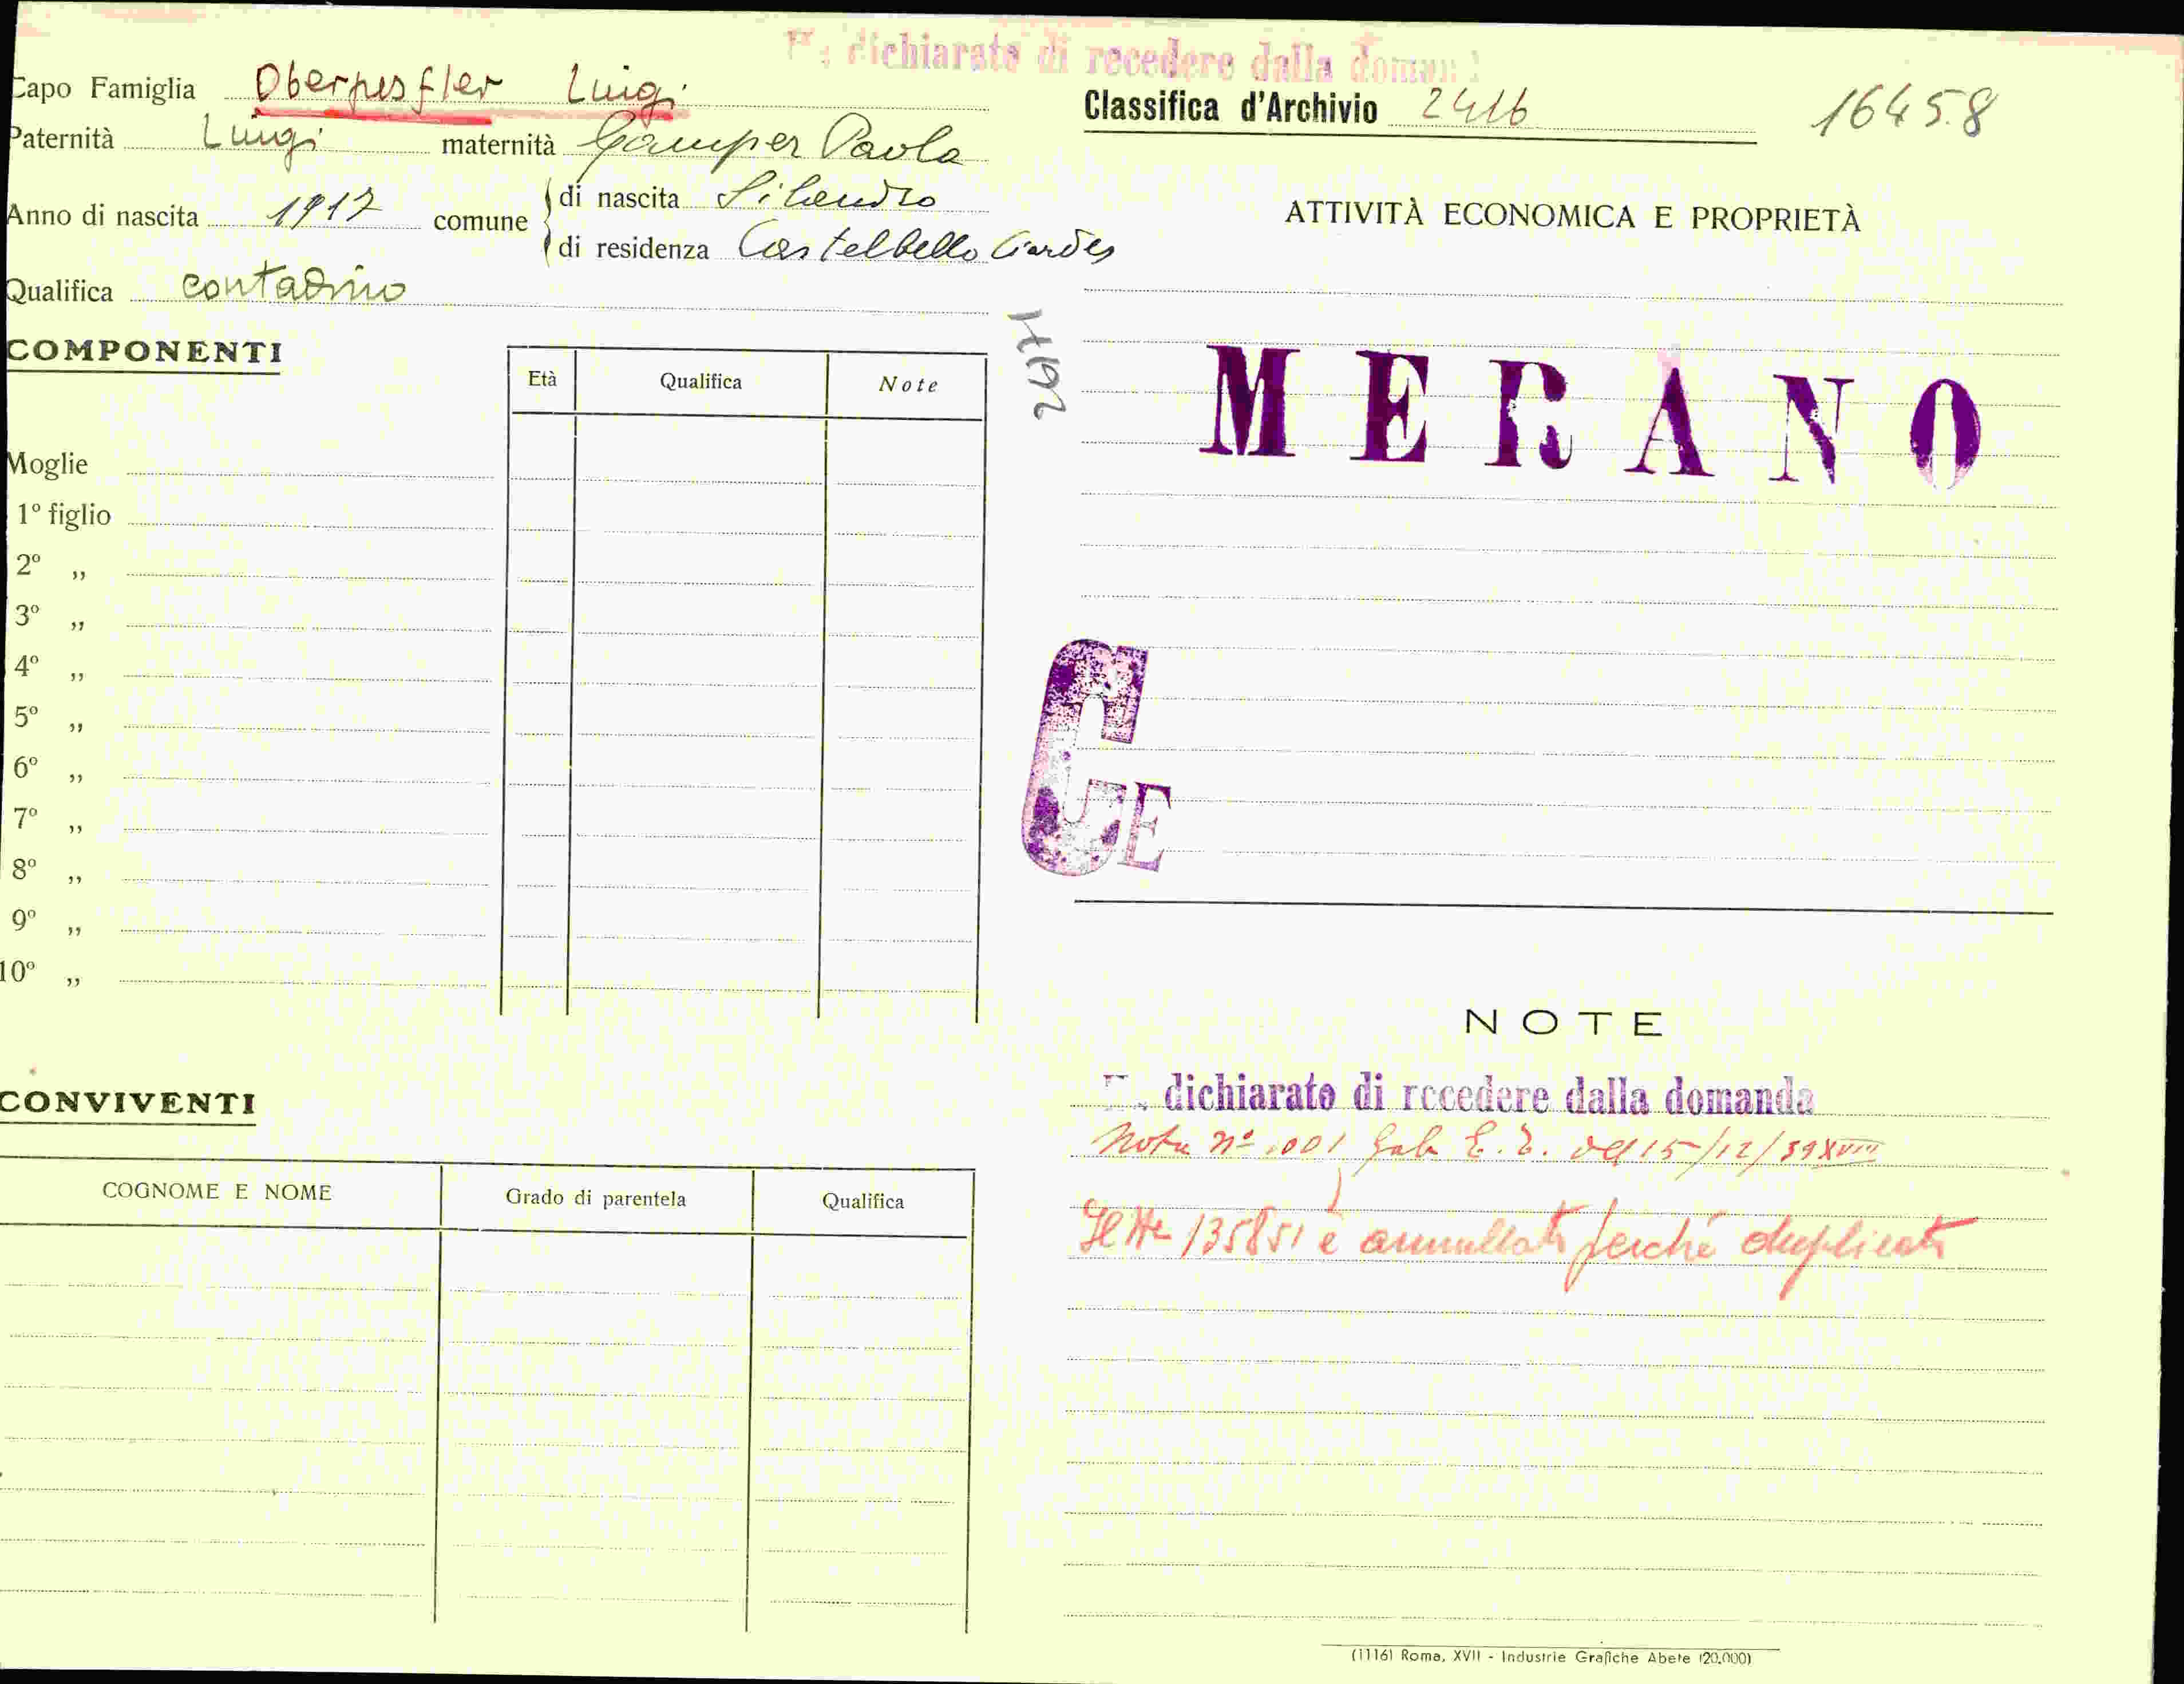 dichiarato di recedere dalla
Capo Famiglia Oberpesfler Luigi
Paternità Luigi maternità Gamper Paola
Anno di nascita 1917 comune di nascita Silandro
di residenza Castelbello Ciardes
Qualifica contadino
COMPONENTI
Età Qualifica Note
Moglie
1º figlio
2º „
3º „
4º „
5º „
6º „
7º „
8º „
9º „
10º „
CONVIVENTI
COGNOME E NOME Grado di parentela Qualifica
Classifica d'Archivio 2416
16458
ATTIVITÀ ECONOMICA E PROPRIETÀ
MERANO
CE
NOTE
dichiarato di recedere dalla domanda
Nota nº 1001 Gab E. E. del 15/12/39 XVIII
Il 135851 è annullato perché duplicato
(1116) Roma, XVII - Industrie Grafiche Abete (20.000)